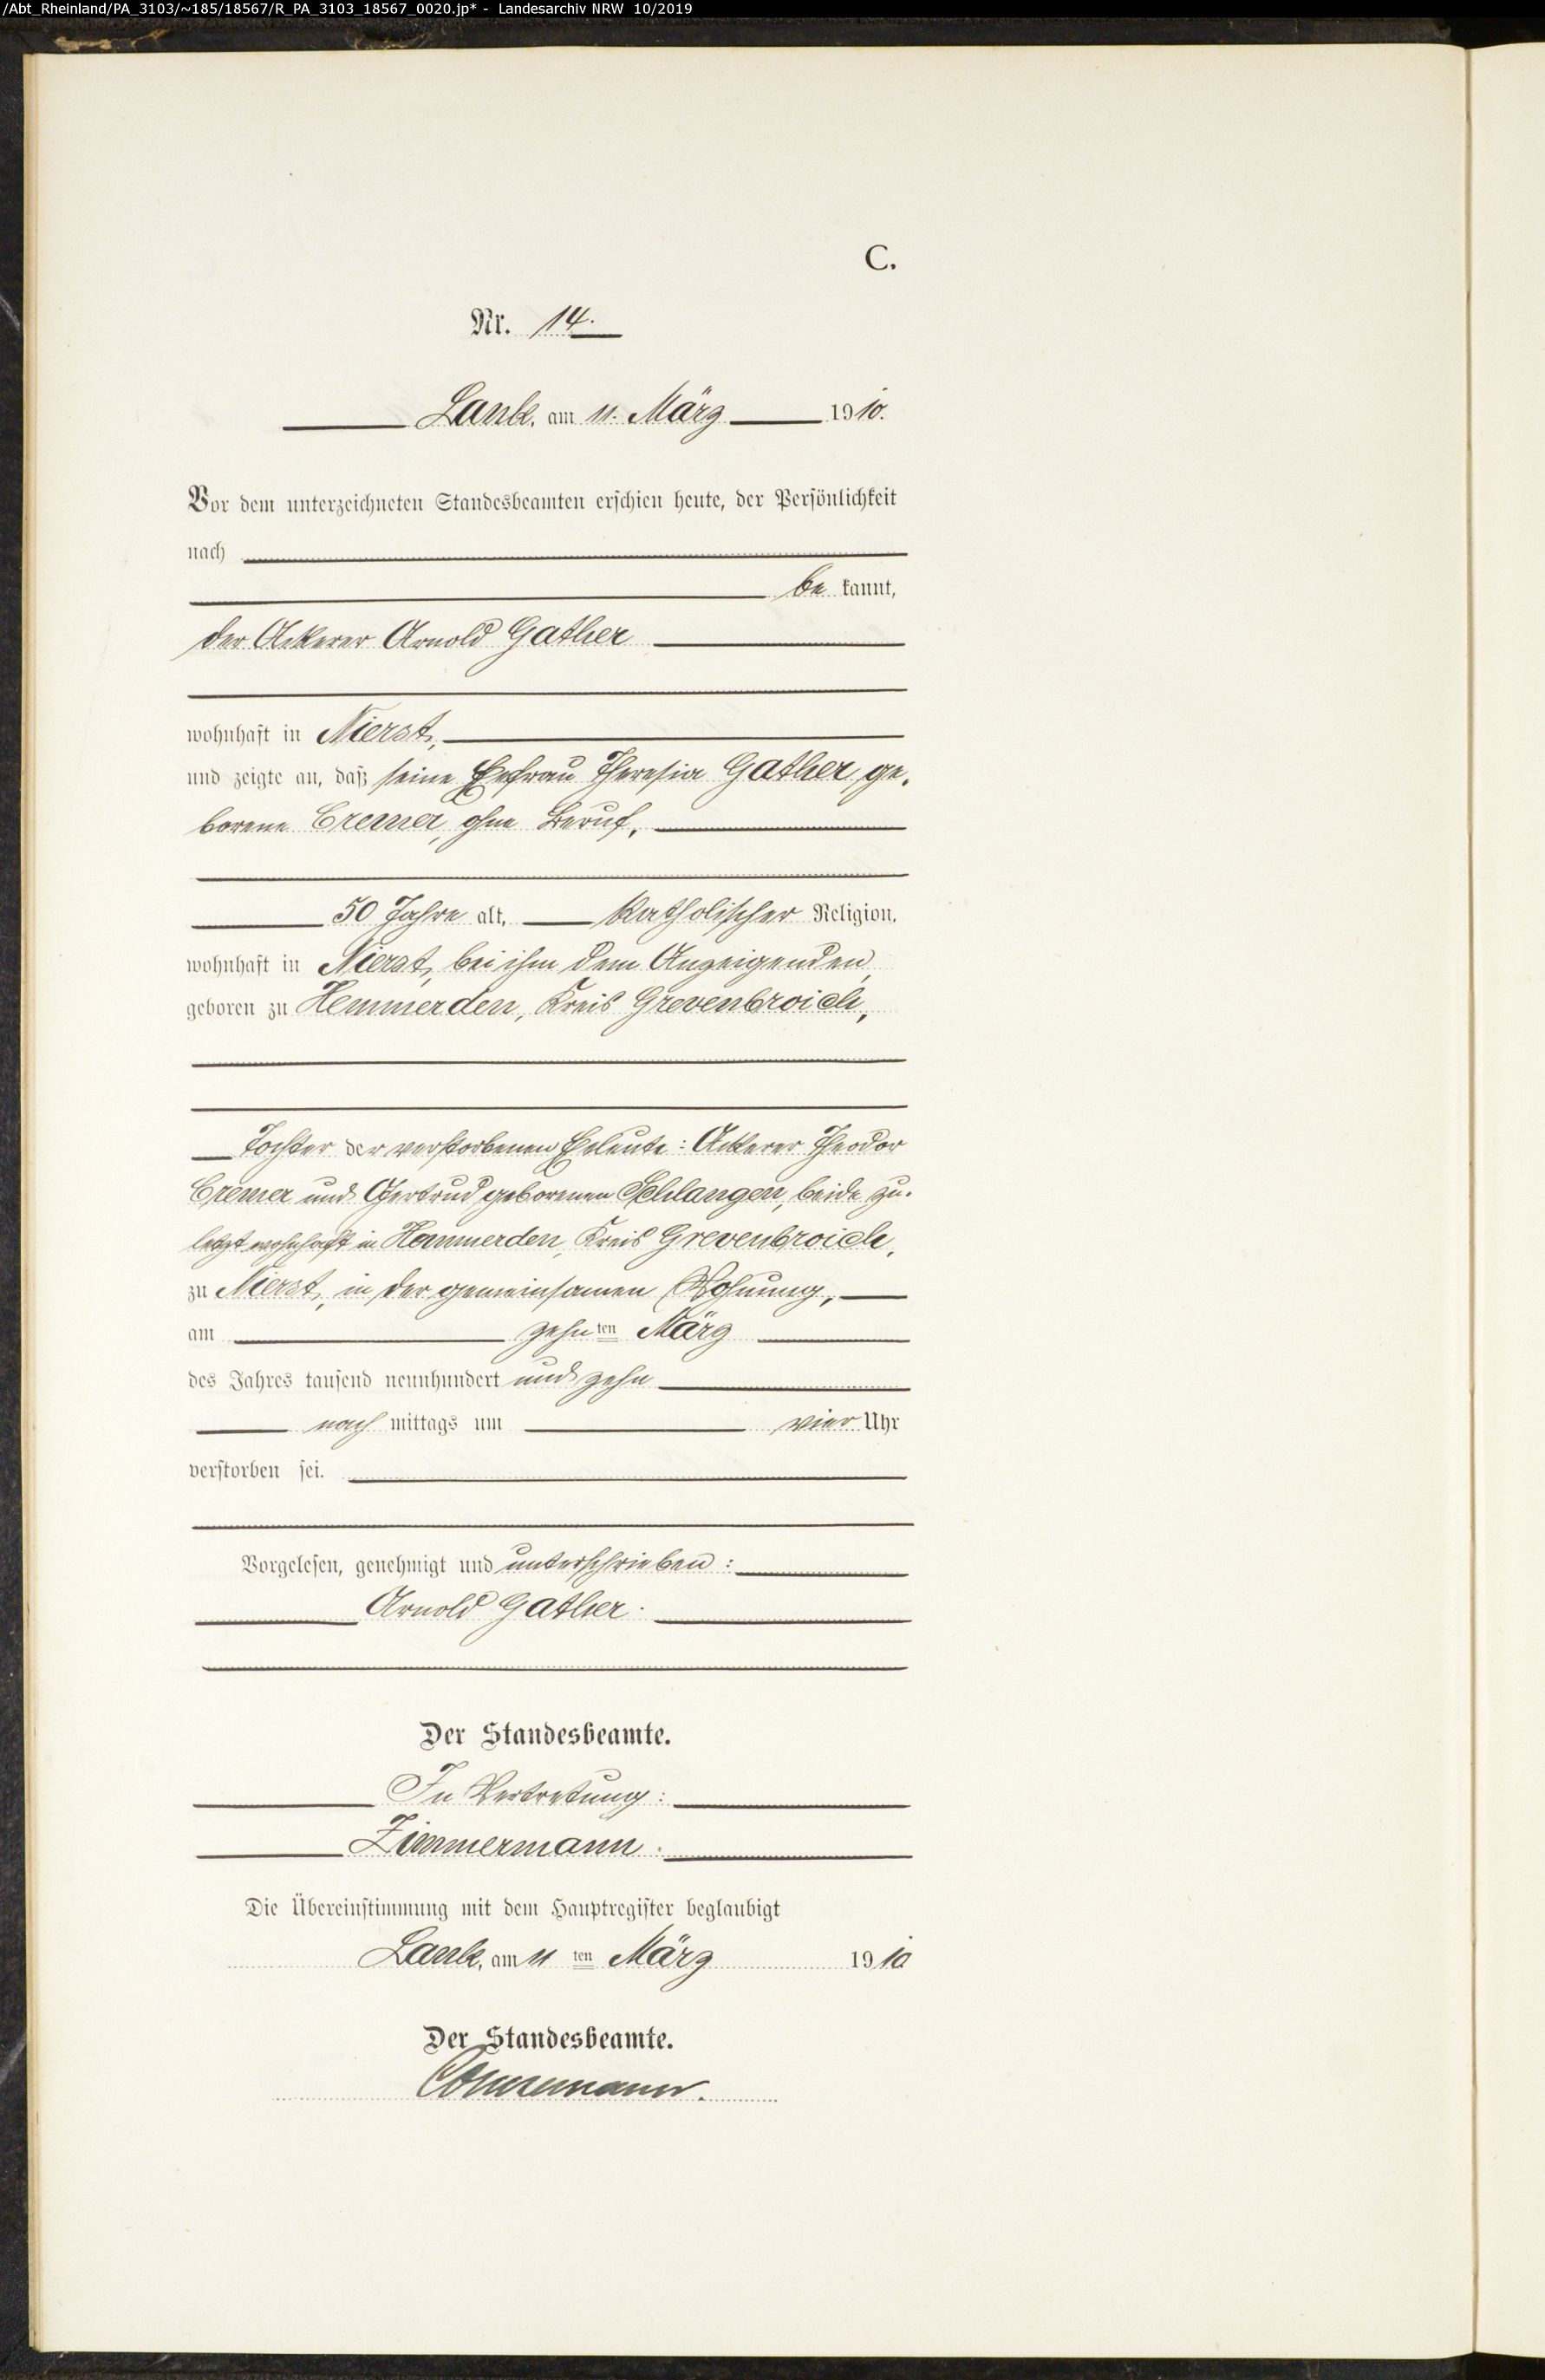 /Abt_Rheinland/PA_3103/~185/18567/R_PA_3103_18567_0020.jp* - Landesarchiv NRW 10/2019
C.
Nr. 14.
Lank, am 11. März 1910.
Vor dem unterzeichneten Standesbeamten erschien heute, der Persönlichkeit
nach
be kannt,
der Ackerer Arnold Gather
wohnhaft in Nierst,
und zeigte an, daß seine Ehefrau Theresia Gather ge-
borene Cremer, ohne Beruf,
50 Jahre alt, katholischer Religion,
wohnhaft in Nierst, bei ihm dem Anzeigenden,
geboren zu Hemmerden, Kreis Grevenbroich,
Tochter der verstorbenen Eheleute: Ackerer Theodor
Cremer und Gertrud geborenen Schlangen, beide zu-
letzt wohnhaft in Hemmerden, Kreis Grevenbroich,
zu Nierst, in der gemeinsamen Wohnung,
am zehn ten März
des Jahres tausend neunhundert und zehn
nach mittags um vier Uhr
verstorben sei.
Vorgelesen, genehmigt und unterschrieben:
Arnold Gather.
Der Standesbeamte.
In Vertretung:
Zimmermann.
Die Übereinstimmung mit dem Hauptregister beglaubigt
Lank, am 11 ten März 1910
Der Standesbeamte.